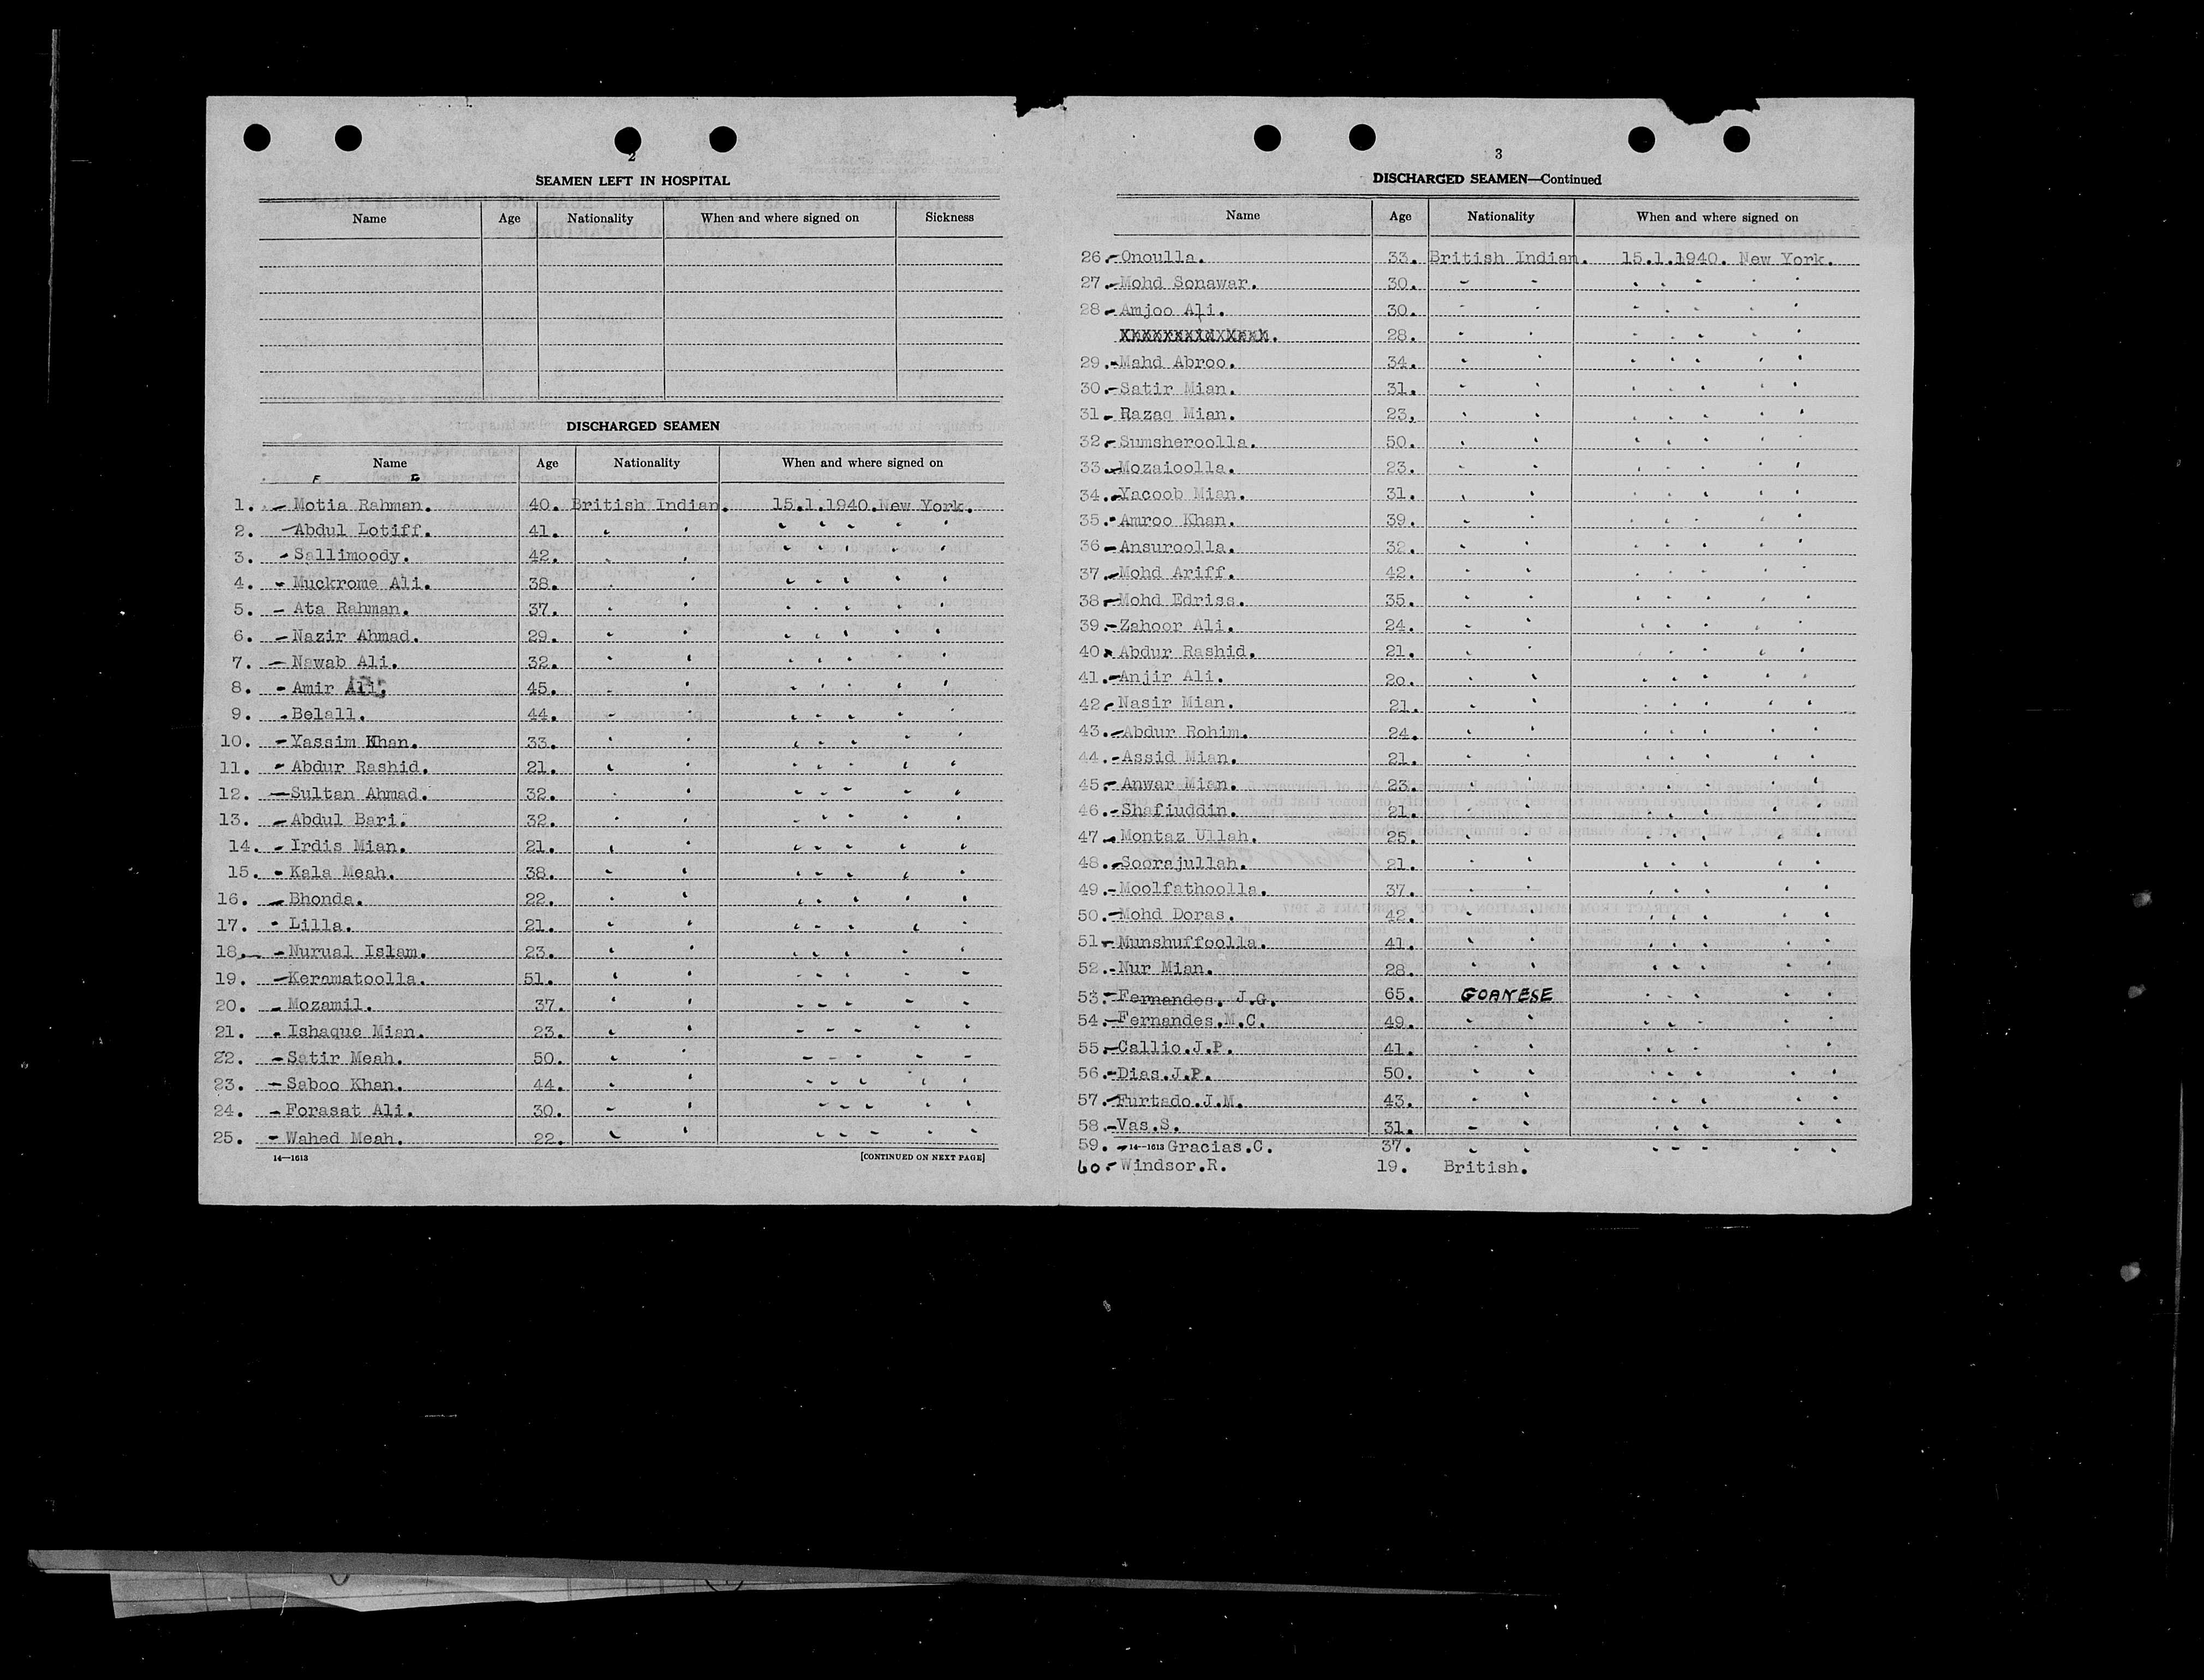 2
SEAMEN LEFT IN HOSPITAL
Name Age Nationality When and where signed on Sickness
DISCHARGED SEAMEN
Name Age Nationality When and where signed on
F G
1. - Motia Rahman. 40. British Indian. 15.1.1940.New York.
2. -Abdul Lotiff. 41. " " " " " " "
3. - Sallimoody. 42. " " " " " " "
4. - Muckrome Ali. 38. " " " " " " "
5. - Ata Rahman. 37. " " " " " " "
6. - Nazir Ahmad. 29. " " " " " " "
7. - Nawab Ali. 32. " " " " " " "
8. - Amir Ali. 45. " " " " " " "
9. - Belall. 44. " " " " " " "
10. - Yassim Khan. 33. " " " " " " "
11. - Abdur Rashid. 21. " " " " " " "
12. -Sultan Ahmad. 32. " " " " " " "
13. - Abdul Bari. 32. " " " " " " "
14. - Irdis Mian. 21. " " " " " " "
15. - Kala Meah. 38. " " " " " " "
16. - Bhonda. 22. " " " " " " "
17. - Lilla. 21. " " " " " " "
18. - Nurual Islam. 23. " " " " " " "
19. -Keramatoolla. 51. " " " " " " "
20. - Mozamil. 37. " " " " " " "
21. - Ishaque Mian. 23. " " " " " " "
22. - Satir Meah. 50. " " " " " " "
23. - Saboo Khan. 44. " " " " " " "
24. - Forasat Ali. 30. " " " " " " "
25. - Wahed Meah. 22. " " " " " " "
14—1613 [CONTINUED ON NEXT PAGE]
3
DISCHARGED SEAMEN—Continued
Name Age Nationality When and where signed on
26.-Onoulla. 33. British Indian. 15.1.1940. New York.
27.-Mohd Sonawar. 30. " " " " " " "
28.-Amjoo Ali. 30. " " " " " " "
28. " " " " " " "
29.-Mahd Abroo. 34. " " " " " " "
30.-Satir Mian. 31. " " " " " " "
31.- Razaq Mian. 23, " " " " " " "
32.-Sumsheroolla. 50. " " " " " " "
33.-Mozaioolla. 23. " " " " " " "
34.-Yacoob Mian. 31. " " " " " " "
35.-Amroo Khan. 39. " " " " " " "
36.-Ansuroolla. 32. " " " " " " "
37.-Mohd Ariff. 42. " " " " " " "
38.-Mohd Edriss. 35. " " " " " " "
39.-Zahoor Ali. 24. " " " " " " "
40.-Abdur Rashid. 21. " " " " " " "
41.-Anjir Ali. 20. " " " " " " "
42.-Nasir Mian. 21. " " " " " " "
43.-Abdur Rohim. 24. " " " " " " "
44.-Assid Mian. 21. " " " " " " "
45.-Anwar Mian. 23. " " " " " " "
46.-Shafiuddin. 21. " " " " " " "
47.-Montaz Ullah. 25. " " " " " " "
48.-Soorajullah. 21. " " " " " " "
49.-Moolfathoolla. 37. " " " " " " "
50.-Mohd Doras. 42. " " " " " " "
51.-Munshuffoolla. 41. " " " " " " "
52.-Nur Mian. 28. " " " " " " "
53.-Fernandes. J.G. 65. GOANESE " " " " "
54.-Fernandes.M.C. 49. " " " " " " "
55.-Callio.J.P. 41. " " " " " " "
56.-Dias.J.P. 50. " " " " " " "
57.-Furtado.J.M. 43. " " " " " " "
58.-Vas.S. 31. " " " " " " "
59. -14—1613 Gracias.C. 37. " " " " " " "
60.-Windsor.R. 19. British.